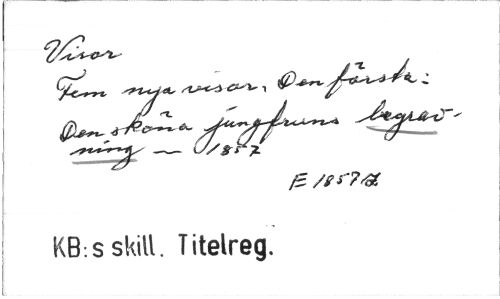 Visor
Fem nya visor. Den första:
Den sköna jungfruns begrav-
ning — 1857
E 1857
KB:s skill. Titelreg.